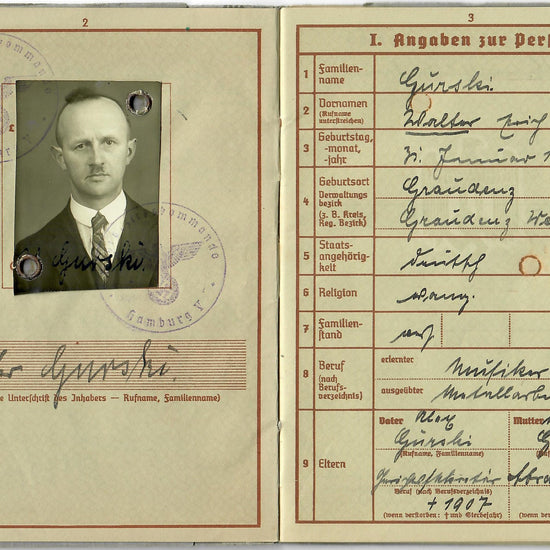 2
Hamburg V
Gurski
Gurski
Unterschrift des Inhabers — Rufname, Familienname)
3
I. Angaben zur Per
1 Familien-
name
Gurski
2 Vornamen
(Rufname
unterstreichen)
Walter Erich
3 Geburtstag,
-monat,
-jahr
31. Januar 1
4 Geburtsort
Verwaltungs
bezirk
(z. B. Kreis,
Reg. Bezirk)
Graudenz
Graudenz
5 Staats-
angehörig-
keit
deutsch
6 Religion
evang.
7 Familien-
stand
8 Beruf
(nach
Berufs-
verzeichnis)
erlernter
Musiker
ausgeübter
Metallarbe
9 Eltern
Vater
Gurski
(Rufname, Familienname)
Beruf (nach Berufsverzeichnis)
† 1907
(wenn verstorben: † und Sterbejahr)
Mutter
(Rufn
(wenn